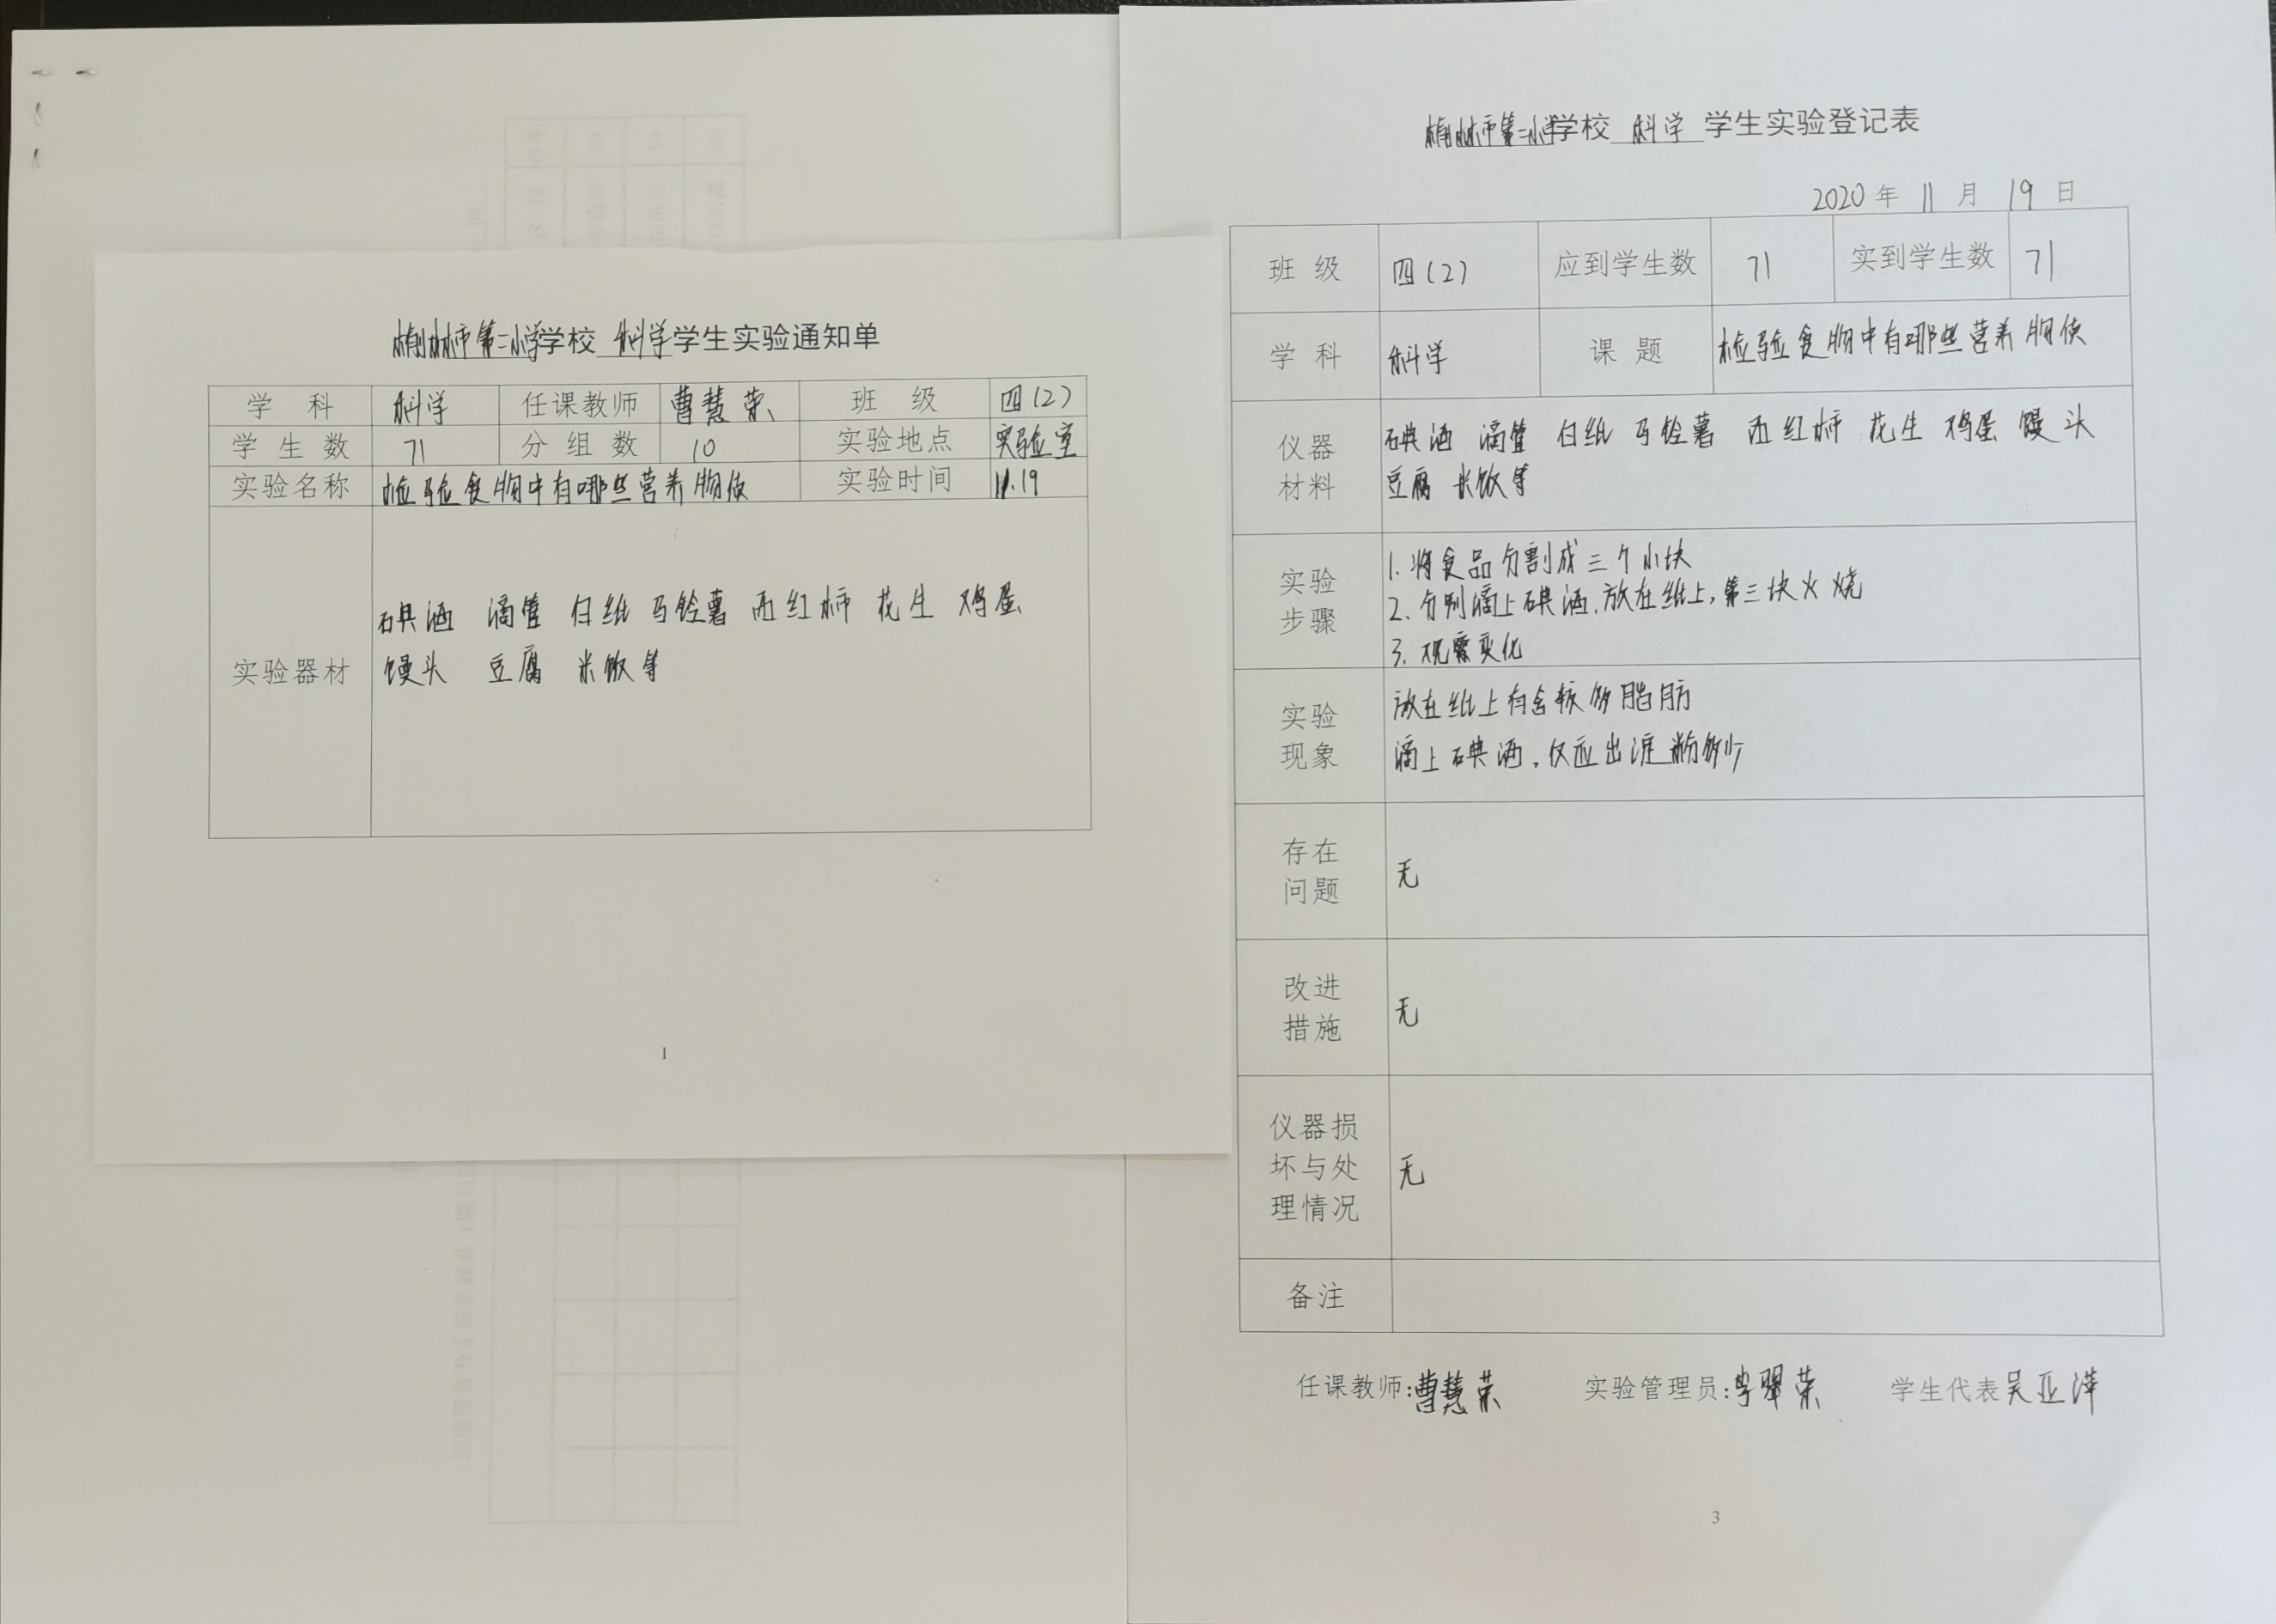 榆林市第二小学学校 科学 学生实验通知单
学 科 科学 任课教师 曹慧荣 班 级 四(2)
学生数 71 分组数 10 实验地点 实验室
实验名称 检验食物中有哪些营养物质 实验时间 11.19
实验器材
碘酒 滴管 白纸 马铃薯 西红柿 花生 鸡蛋
馒头 豆腐 米饭等
1
榆林市第二小学学校 科学 学生实验登记表
2020年 11 月 19 日
班 级 四(2) 应到学生数 71 实到学生数 71
学 科 科学 课 题 检验食物中有哪些营养物质
仪器
材料
碘酒 滴管 白纸 马铃薯 西红柿 花生 鸡蛋 馒头
豆腐 米饭等
实验
步骤
1. 将食品分割成三个小块
2. 分别滴上碘酒,放在纸上,第三块火烧
3. 观察变化
实验
现象
放在纸上有含较多脂肪
滴上碘酒,反应出淀粉多少
存在
问题
无
改进
措施
无
仪器损
坏与处
理情况
无
备注
任课教师:曹慧荣 实验管理员:李翠荣 学生代表 吴亚萍
3